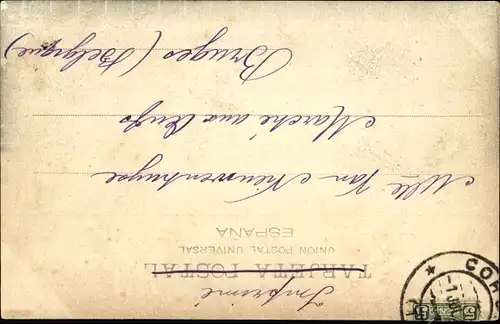 Imprimé
TARJETA POSTAL
UNION POSTAL UNIVERSAL
ESPAÑA
Mlle Van Nieuwenhuyse
Marché aux Œufs
Bruges (Belgique)